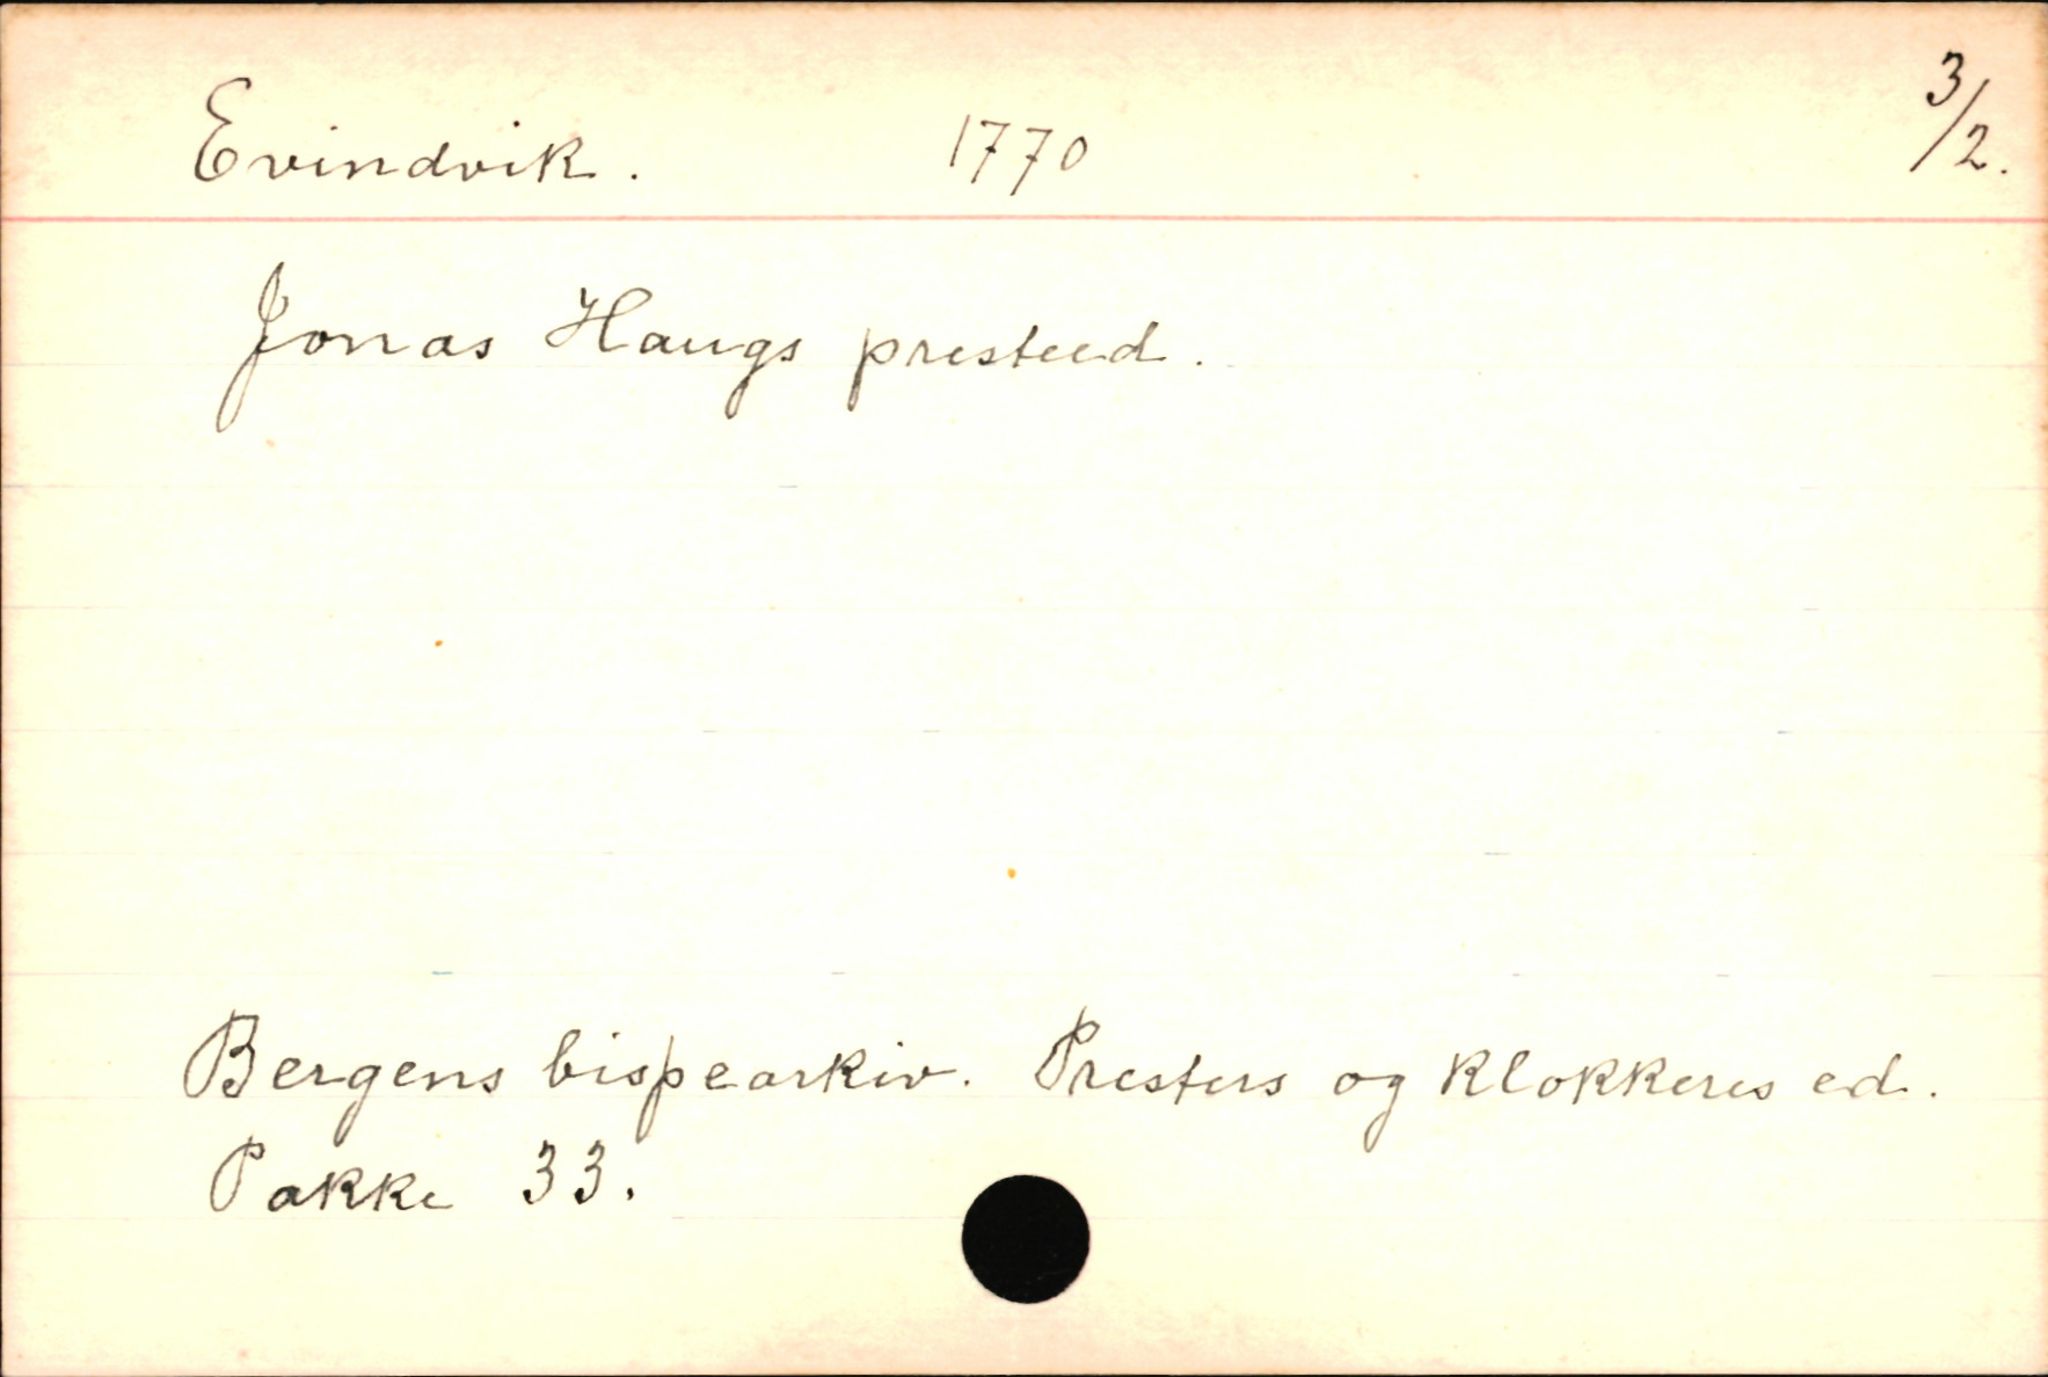 Evindvik. 1770 3/2.
Jonas Haugs presteed.
Bergens bispearkiv. Presters og klokkeres ed.
Pakke 33.